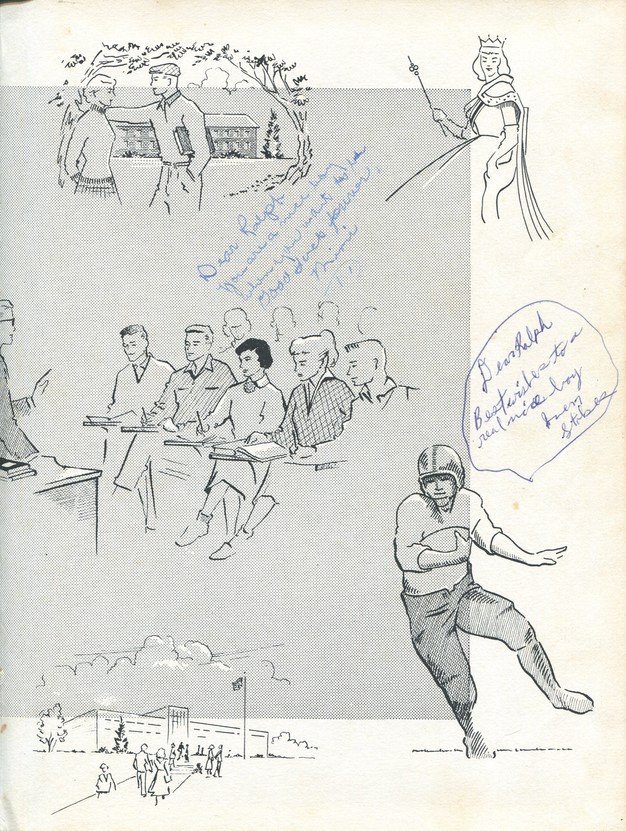 Dear Ralph
You are a nice boy
when you want to be
Good luck forever.
Mimi
Dear Ralph
Best wishes to a
real nice boy